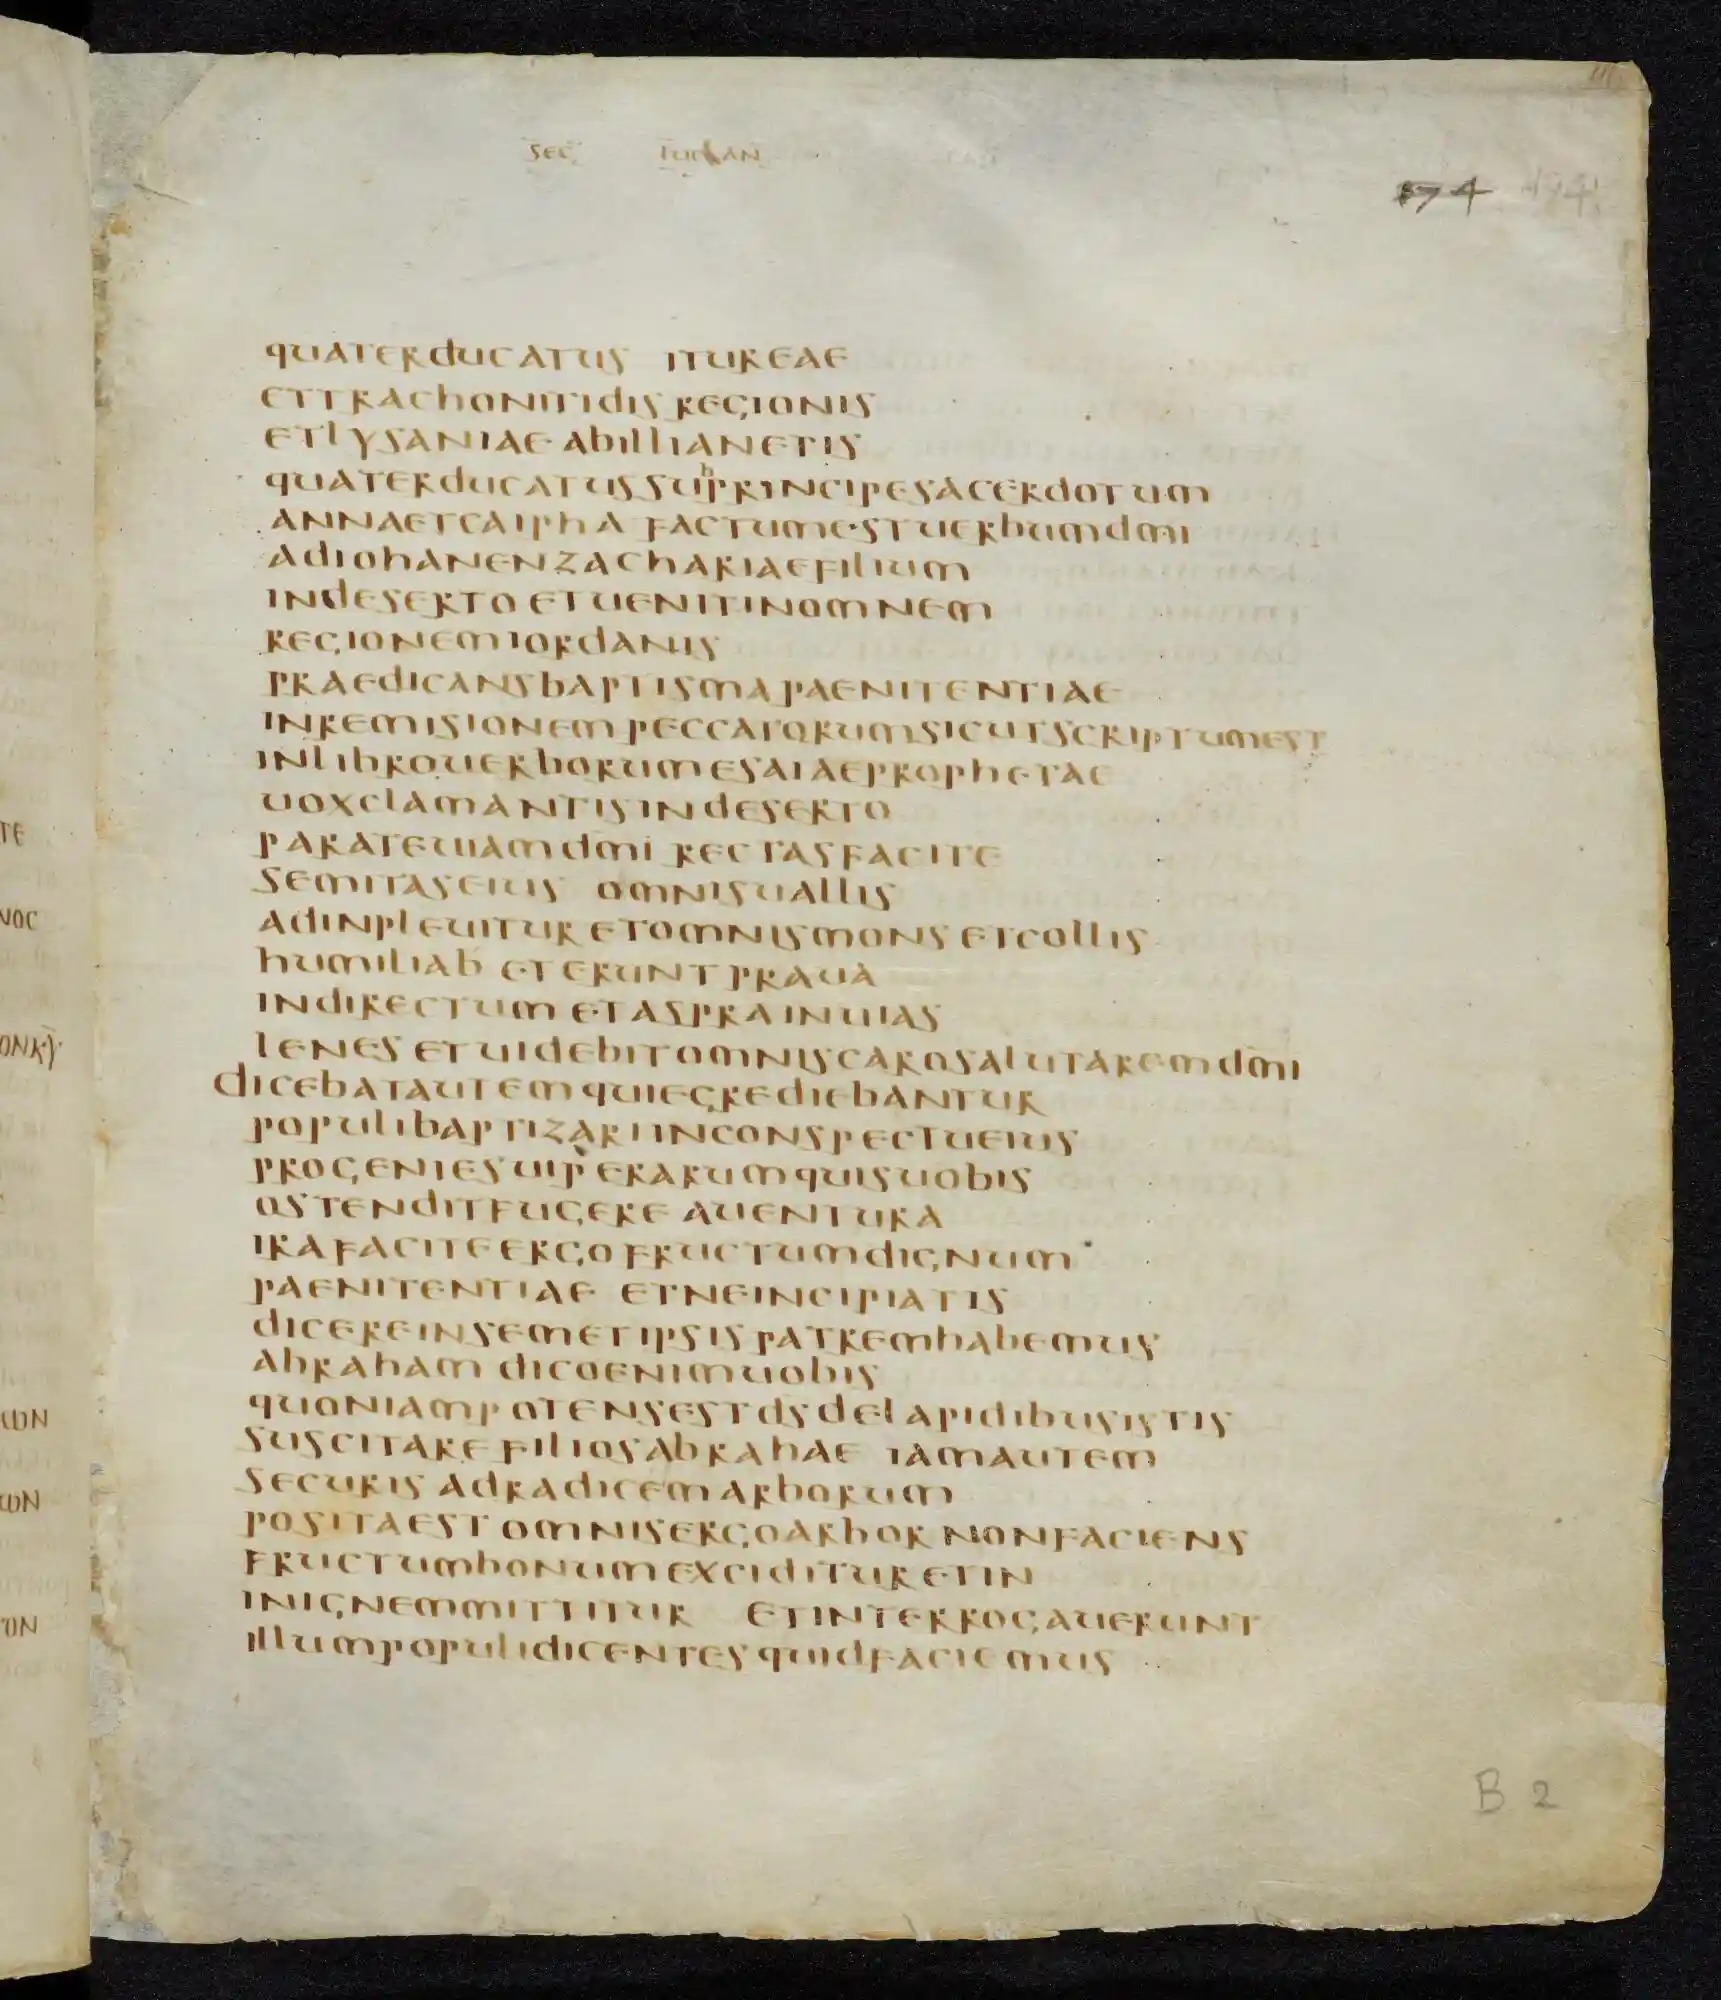 SEC LUCAN
174 194
QUATERDUCATUS ITUREAE
ETTRACHONITIDIS REGIONIS
ETLYSANIAE ABILLIANETIS
QUATERDUCATUS SUbPRINCIPESACERDOTUM
ANNAETCAIPHA FACTUMESTUERBUMDM̄I
ADIOHANENZACHARIAEFILIUM
INDESERTO ETUENITINOMNEM
REGIONEMIORDANIS
PRAEDICANSBAPTISMAPAENITENTIAE
INREMISIONEMPECCATORUMSICUTSCRIPTUMEST
INLIBROUERBORUMESAIAEPROPHETAE
UOXCLAMANTISINDESERTO
PARATEUIAMDM̄I RECTASFACITE
SEMITASEIUS OMNISUALLIS
ADINPLEUITUR ETOMNISMONS ETCOLLIS
HUMILIAB ETERUNTPRAUA
INDIRECTUM ETASPRAINUIAS
LENES ETUIDEBITOMNISCAROSALUTAREMDM̄I
DICEBATAUTEMQUIEGREDIEBANTUR
POPULIBAPTIZARIINCONSPECTUEIUS
PROGENIESUIPERARUMQUISUOBIS
OSTENDITFUGERE AUENTURA
IRAFACITEERGOFRUCTUMDIGNUM
PAENITENTIAE ETNEINCIPIATIS
DICEREINSEMETIPSISPATREMHABEMUS
ABRAHAM DICOENIMUOBIS
QUONIAMPOTENSESTDSDELAPIDIBUSISTIS
SUSCITAREFILIOSABRAHAE IAMAUTEM
SECURIS ADRADICEMARBORUM
POSITAEST OMNISERGOARBOR NONFACIENS
FRUCTUMBONUMEXCIDITURETIN
INIGNEMMITTITUR ETINTERROGAUERUNT
ILLUMPOPULIDICENTESQUIDFACIEMUS
B 2
TE
NOC
ONKY
ΩN
ΩN
ON